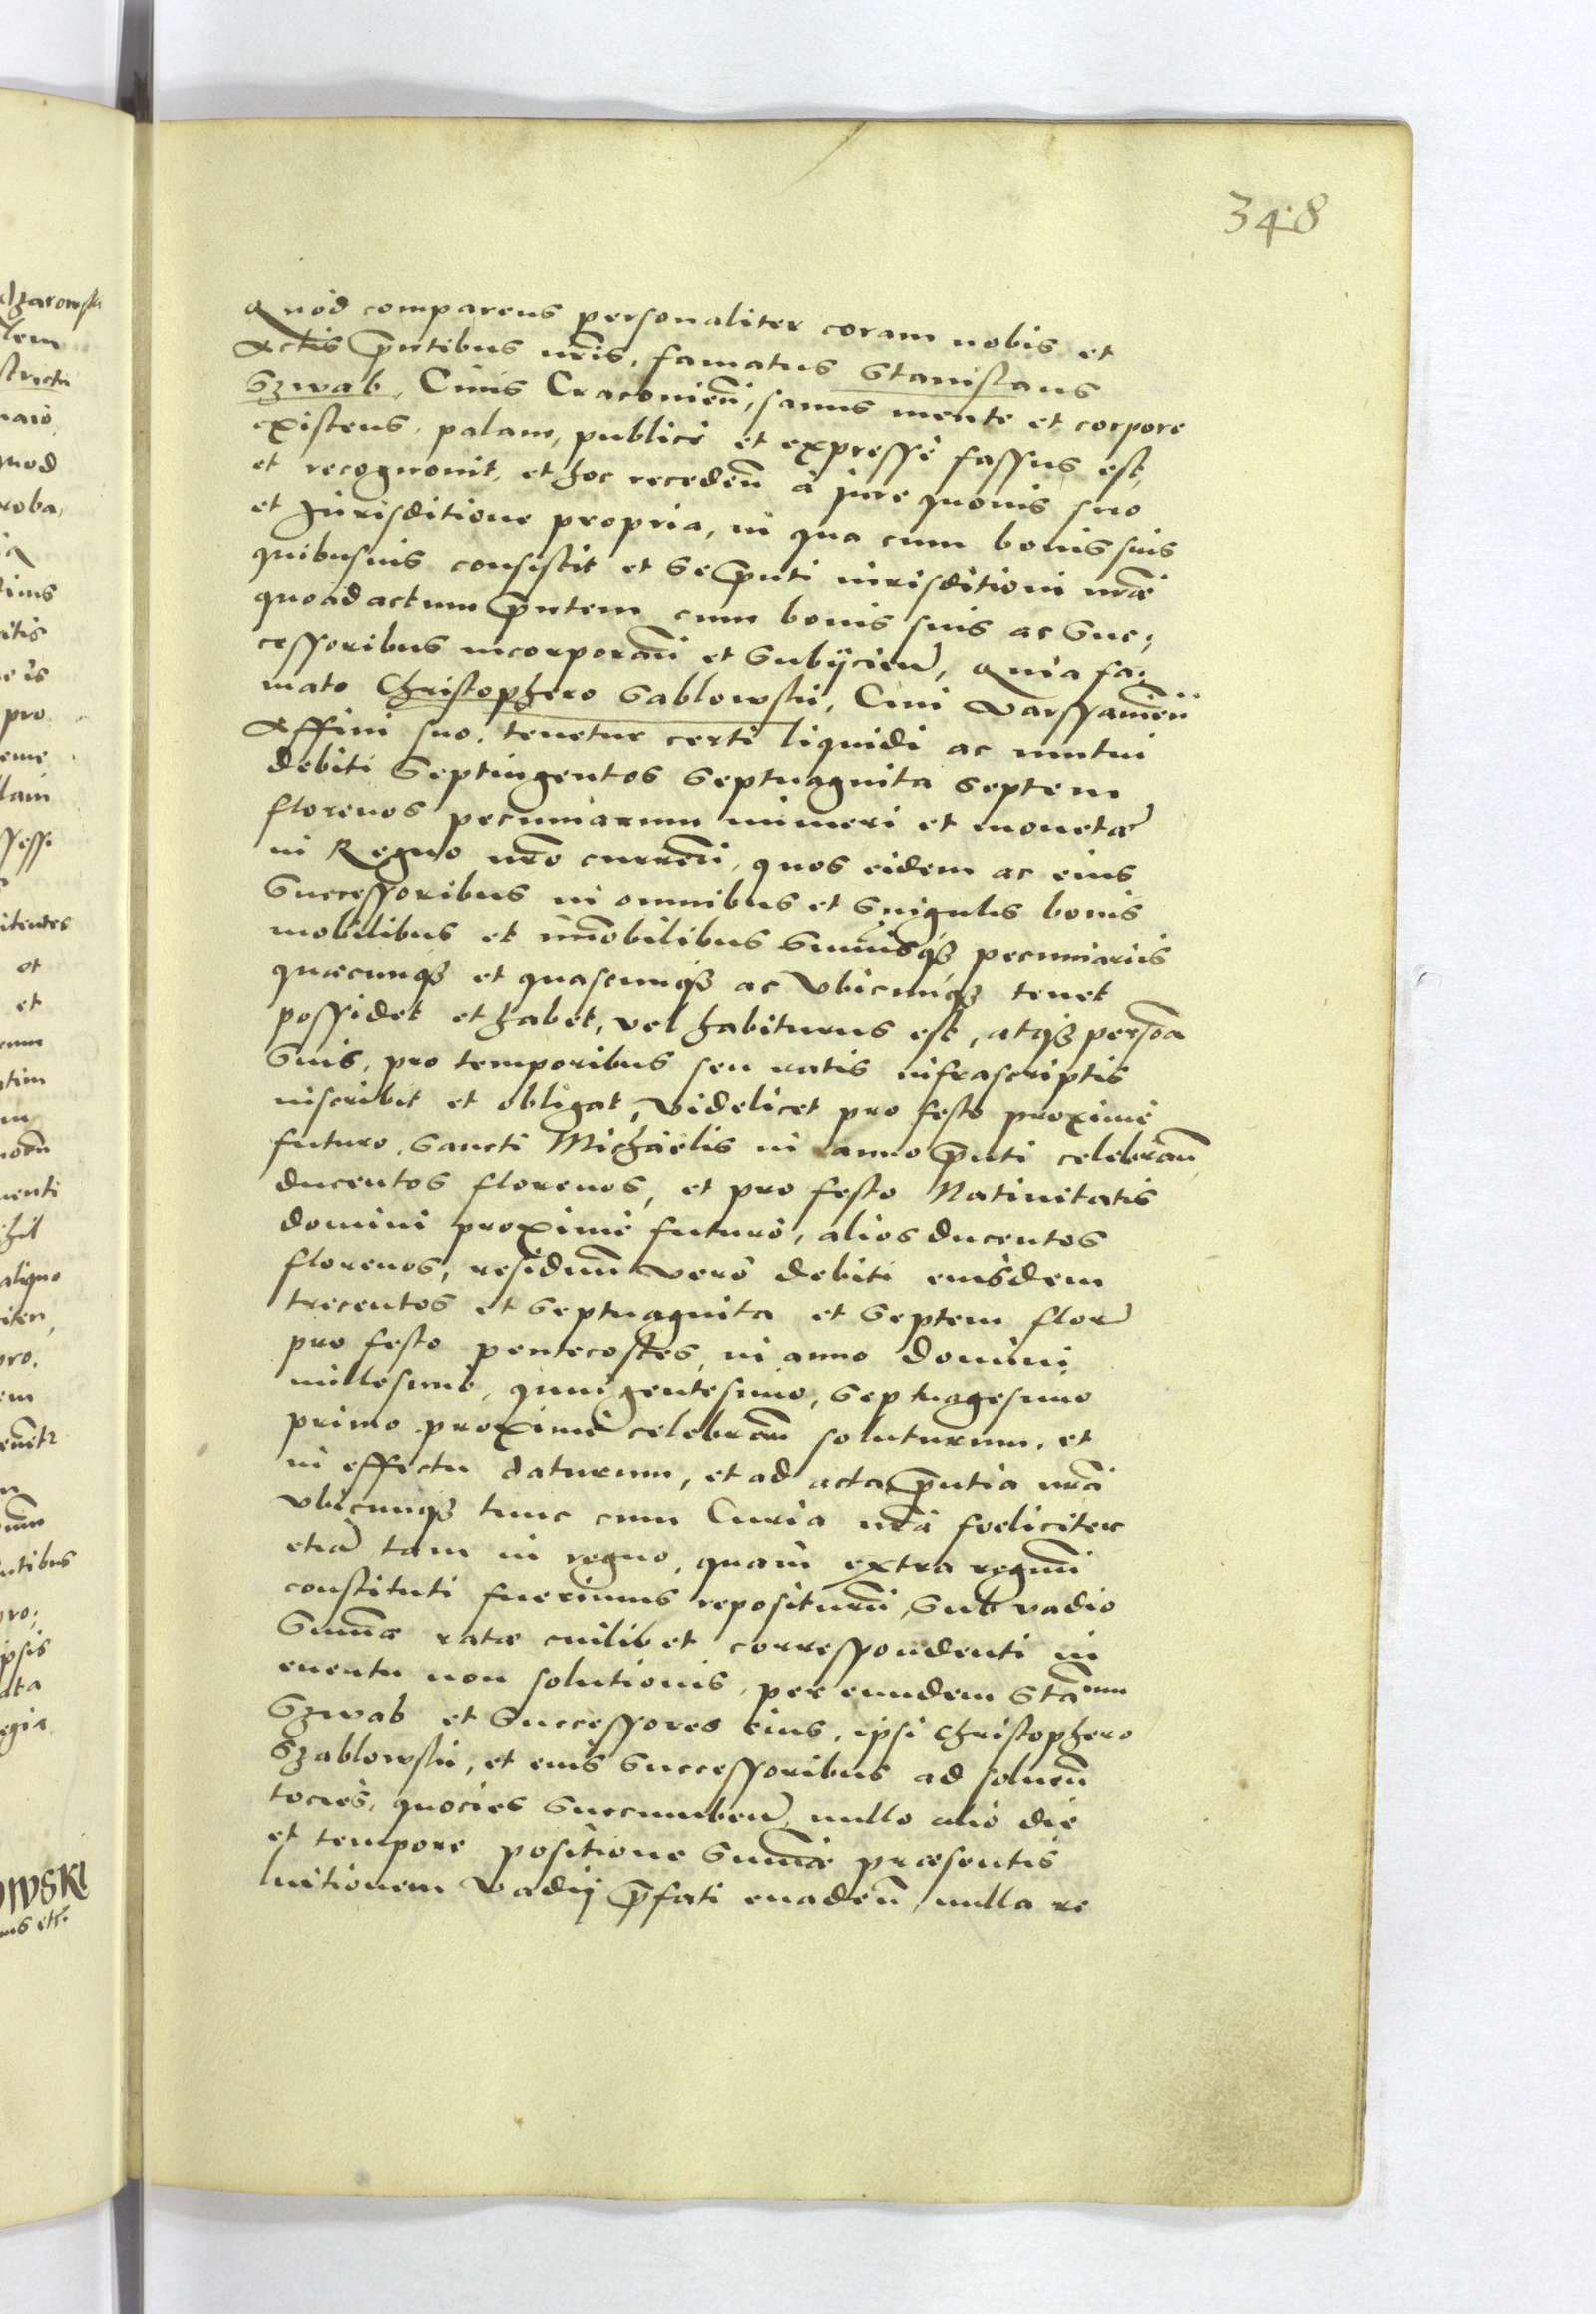 348
Quod comparens personaliter coram nobis et
Actis p̃ntibus nr̃is, famatus Stanislaus
Szwab, Ciuis Cracouien̄, sanus mente et corpore
existens, palam, publicè et expressè fassus est,
et recognouit, et hoc receden̄ à jure quouis suo
et Jurisditione propria, in qua cum bonis suis
quibusuis consistit et se p̃nti iurisditioni nr̃æ
quoad actum p̃ntem cum bonis suis ac Suc,
cessoribus incorporan̄ et Subijcien̄, Quia fa,
mato Christophero Sablowski, Ciui Varssauien̄
Affini suo, tenetur certi liquidi ac mutui
debiti Septingentos Septuaginta septem
florenos pecuniarum numeri et monetæ
in Regno nr̃o curren̄, quos eidem ac eius
Successoribus in omnibus et Singulis bonis
mobilibus et im̄obilibus Sum̄isq₃ pecuniarijs
quæcunq₃ et quascunq₃ ac Vbicunq₃ tenet
possidet et habet, vel habiturus est, atq₃ persona
Suis, pro temporibus seu ratis infrascriptis
inscribit et obligat, Videlicet pro festo proximè
futuro, Sancti Michaelis in anno p̃nti celebran̄
ducentos florenos, et pro festo Natiuitatis
domini proximè futuro, alios ducentos
florenos, residuum verò debiti eiusdem
trecentos et Septuaginta et Septem flor
pro festo pentecostes, in anno Domini
millesimo, quingentesimo, Septuagesimo
primo proximè celebran̄ soluturum, et
in effectu daturum, et ad acta p̃ntia nr̃a
Vbicunq₃ tunc cum Curia nr̃a foeliciter
etiā tam in regno, quàm extra regnum
constituti fuerimus repositurum, Sub vadio
Sum̄æ ratæ cuilibet correspondenti in
euentu non solutionis, per eundem Stānum
Szwab et Successores eius, ipsi Christophero
Szablowski, et eius Successoribus ad soluen̄
tocies, quocies Succumben̄, nullo alio die
et tempore positione Sum̄æ præsentis
luitionem Vadij p̃fati euaden̄, nulla re